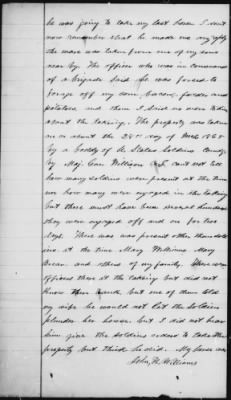 he was going to take my last horse I don't
now remember that he made me any reply
the mare was taken from one of my sons
near by. The officer who was in command
of a brigade said he was forced to
forage off my corn, bacon, fodder and
potatoes and then I said no more to him
about the taking. The property was taken
on or about the 28th day of March 1865
by a body of U. States Soldiers Comdg
by Maj. Gen. William can't tell
how many soldiers were present at the time
nor how many were engaged in the taking
but there must have been several hundred
they were engaged off and on for two
days. There was was present other than sold
iers at the time Mary Williams Mary
Bean and others of my family. There were
officers there at the taking but did not
know their rank, but one of them told
my wife he would not let the soldiers
plunder her house but I did not hear
him give the soldiers orders to take the
property but think he did. My horse was
John, N. Williams